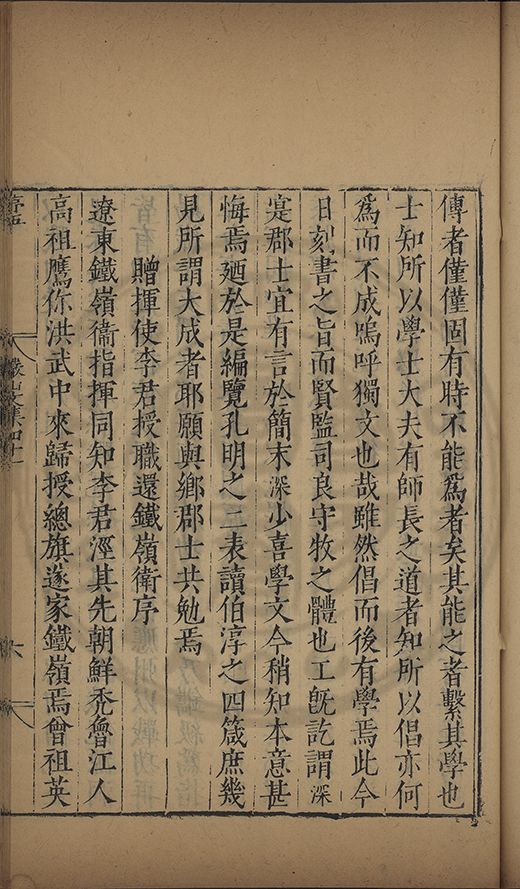 傳者僅僅固有時不能爲者矣其能之者繫其學也
士知所以學士大夫有師長之道者知所以倡亦何
爲而不成嗚呼獨文也哉雖然倡而後有學焉此今
日刻書之旨而賢監司良守牧之體也工旣訖謂深
寔郡士宜有言於簡末深少喜學文今稍知本意甚
悔焉廼於是編覽孔明之二表讀伯淳之四箴庶幾
見所謂大成者耶願與鄉郡士共勉焉
贈揮使李君授職還鐵嶺衛序
遼東鐵嶺衞指揮同知李君涇其先朝鮮禿魯江人
高祖鷹伱洪武中來歸授總旗遂家鐵嶺焉曾祖英
儼山文集四十一
六